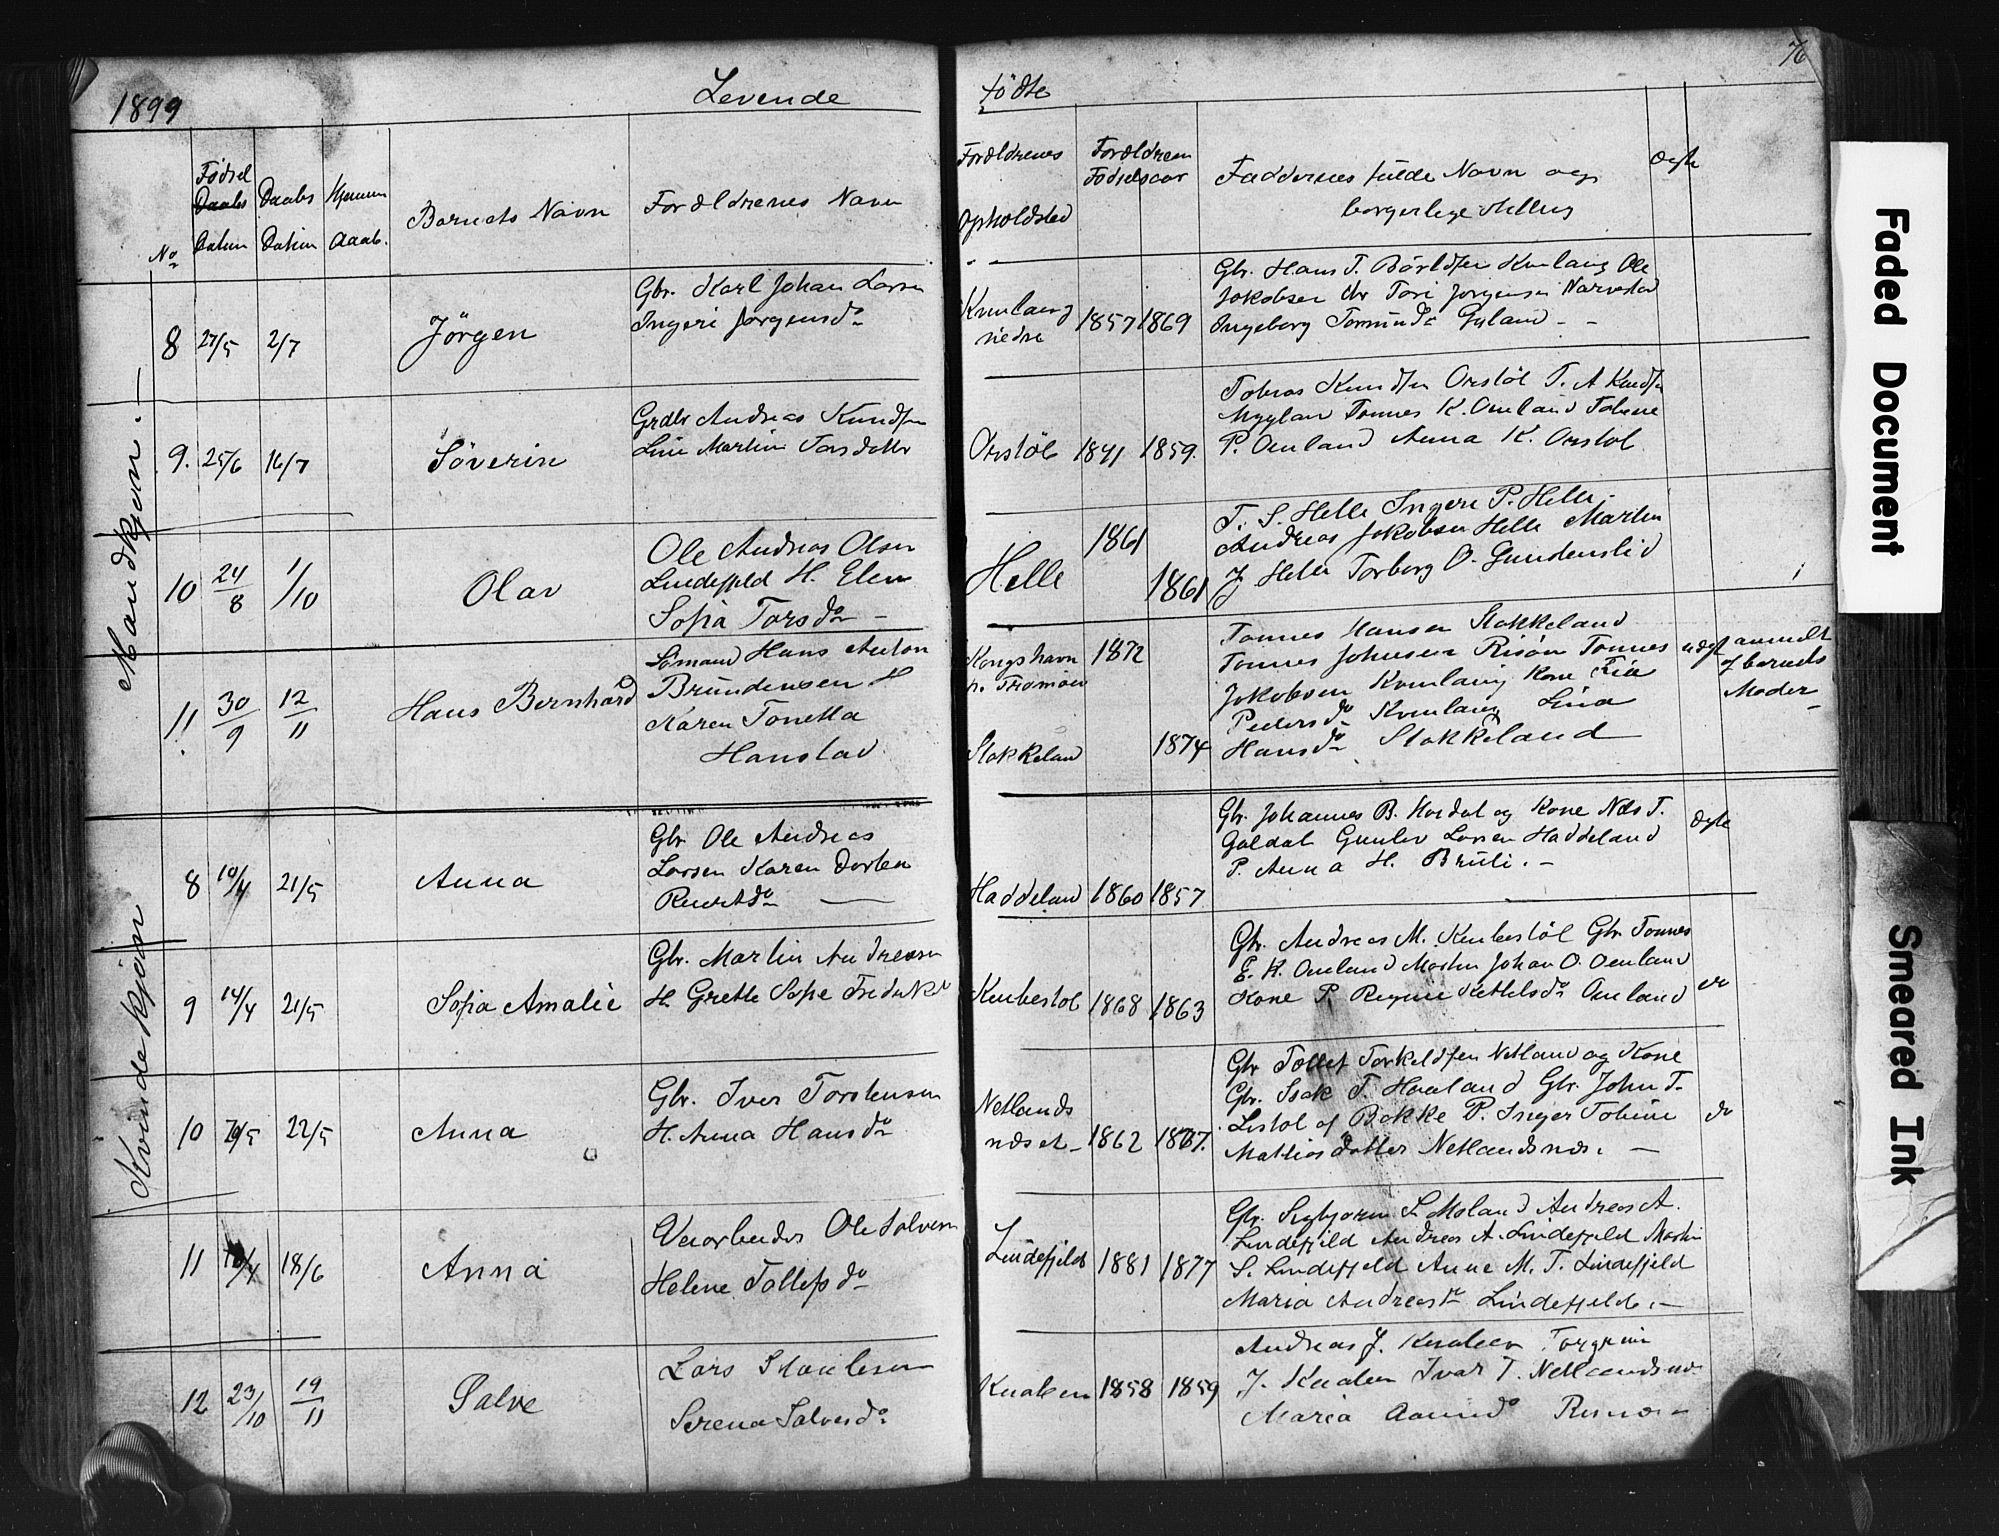 1899
Levende
Fødte
76
No
Fødsel
Daabs
Datum
Daabs
Datum
Hjemme
daab.
Barnets Navn
Forældrenes Navn
Forældrenes
Opholdsted
Forældrenes
Fødselsaar
Faddernes fulde Navn og
borgerlige Stilling
Ægte
Mandkjøn.
8 27/5 2/7 Jörgen
Gbr. Karl Johan Larsen
Ingeri Jørgensdr
Kvnlaug
nedre
1857 1869
Gbr. Hans T. Kvnlaug Ole
Jakobsen Tori Jørgensen Narvestad
Ingeborg Gyland - -
9. 25/6 16/7 Söverin
Andreas Knudsen
Line Martine Torsdatter
Orstöl 1841 1859.
Tobias Knudsen Orstöl T. A Knudsen
Tønnes K. Omland Tobine
P. Omland Anna K. Orstöl
10 24/8 1/10 Olav
Ole Andreas Olsen
Lindefjeld H. Elen
Sofia Torsdr -
Helle 1861
1861
T. S. Helle Ingere P. Helle
Andreas Jakobsen Helle Martin
J Helle Torborg O. Gundenslid
11 30/9 12/11 Hans Bernhard
Sømand Hans Anton
Brundensen H
Karen Tonetta
Hanstad
Kongshavn
p. Tromøen
1872
Stokkeland
1874
Tønnes Hansen Stokkeland
Tønnes Johnsen Risøn Tønnes
Jakobsen Kvnlaug Kone Fia
Pedersdr Kvnlaug Lina
Hansdr Stokkeland
uægt anmeldt
af barnets
Moder
-
Kvindekjøn
8 10/4 21/5 Anna
Gbr Ole Andreas
Larsen Karen Dortea
—
Haddeland 1860 1857
Gbr. Johannes B. Hordal og Kone Nds T.
Galdal Gunlev Larsen Haddeland
P. Anna H. Brüli. -
Ægte
9 14/4 21/5 Sofia Amalie
Gbr. Martin Andreasen
H. Grethe Sofie
Knibestöl 1868 1863
Gbr. Andreas M. Knibestöl Gbr Tønnes
E. K. Omland Martin Johan O. Omland
Kone P. Regine Ketelsdr Omland
do
10 22/5 Anna
Gbr. Iver Torstensen
H. Anna Hansdr
Netlands
næset 1862 1867.
Gbr Tollef Torkeldsen Netland og Kone
Gbr. Isak T. Haaland Gbr. John T.
Listöl af Bakke P. Inger Tobine
Mathiasdatter Netlandsnæs. —
do
11 18/6 Anna
Veiarbeider Ole Salvesen
Helene Tollefsdr
Lindefjeld 1881 1877
Gbr. Sigbjørn S. Moland Andreas A.
Lindefjeld Andreas A. Lindefjeld Martin
S. Lindefjeld Anne M. T. Lindefjeld
Maria Andreasdr Lindefjeld. -
12 23/10 19/11 Salve
Lars
Serena Salvesdr
Knaben 1858 1859
Andreas J. Knaben Torgrim
J. Knaben Ivar T. Netlandsnæs
Maria Aamundsdr Risnæs -
Faded Document
Smeared Ink